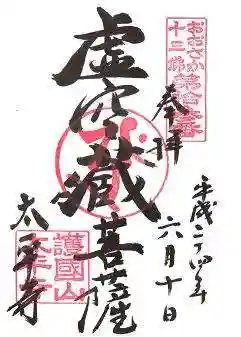 おおさか
十三佛
第十三番
奉拝
平成二十四年
六月十日
虚空蔵菩薩
太平寺
護國山
太平寺